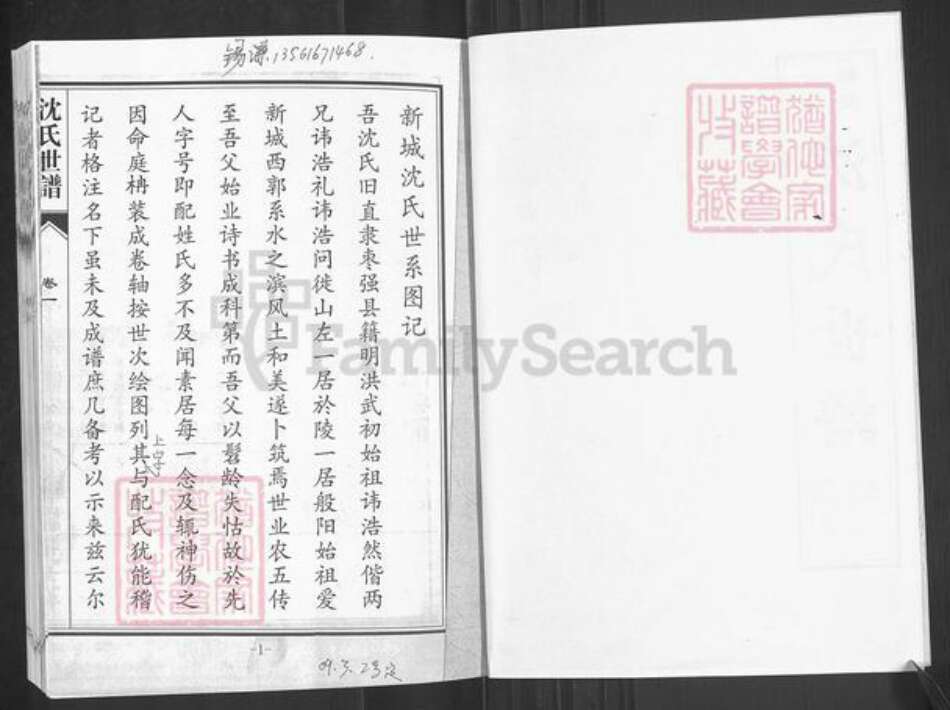 锡谦.13561671468.
新城沈氏世系图记
吾沈氏旧直隶枣强县籍明洪武初始祖讳浩然偕两
兄讳浩礼讳浩问徙山左一居於陵一居般阳始祖爱
新城西郭系水之滨风土和美遂卜筑焉世业农五传
至吾父始业诗书成科第而吾父以髫龄失怙故於先
人字号即配姓氏多不及闻素居每一念及辄神伤之
因命庭柟装成卷轴按世次绘图列其与配氏犹能稽
上字
记者格注名下虽未及成谱庶几备考以示来兹云尔
沈氏世谱
卷一
-1-
FamilySearch
谱学会
收藏
谱学会
收藏